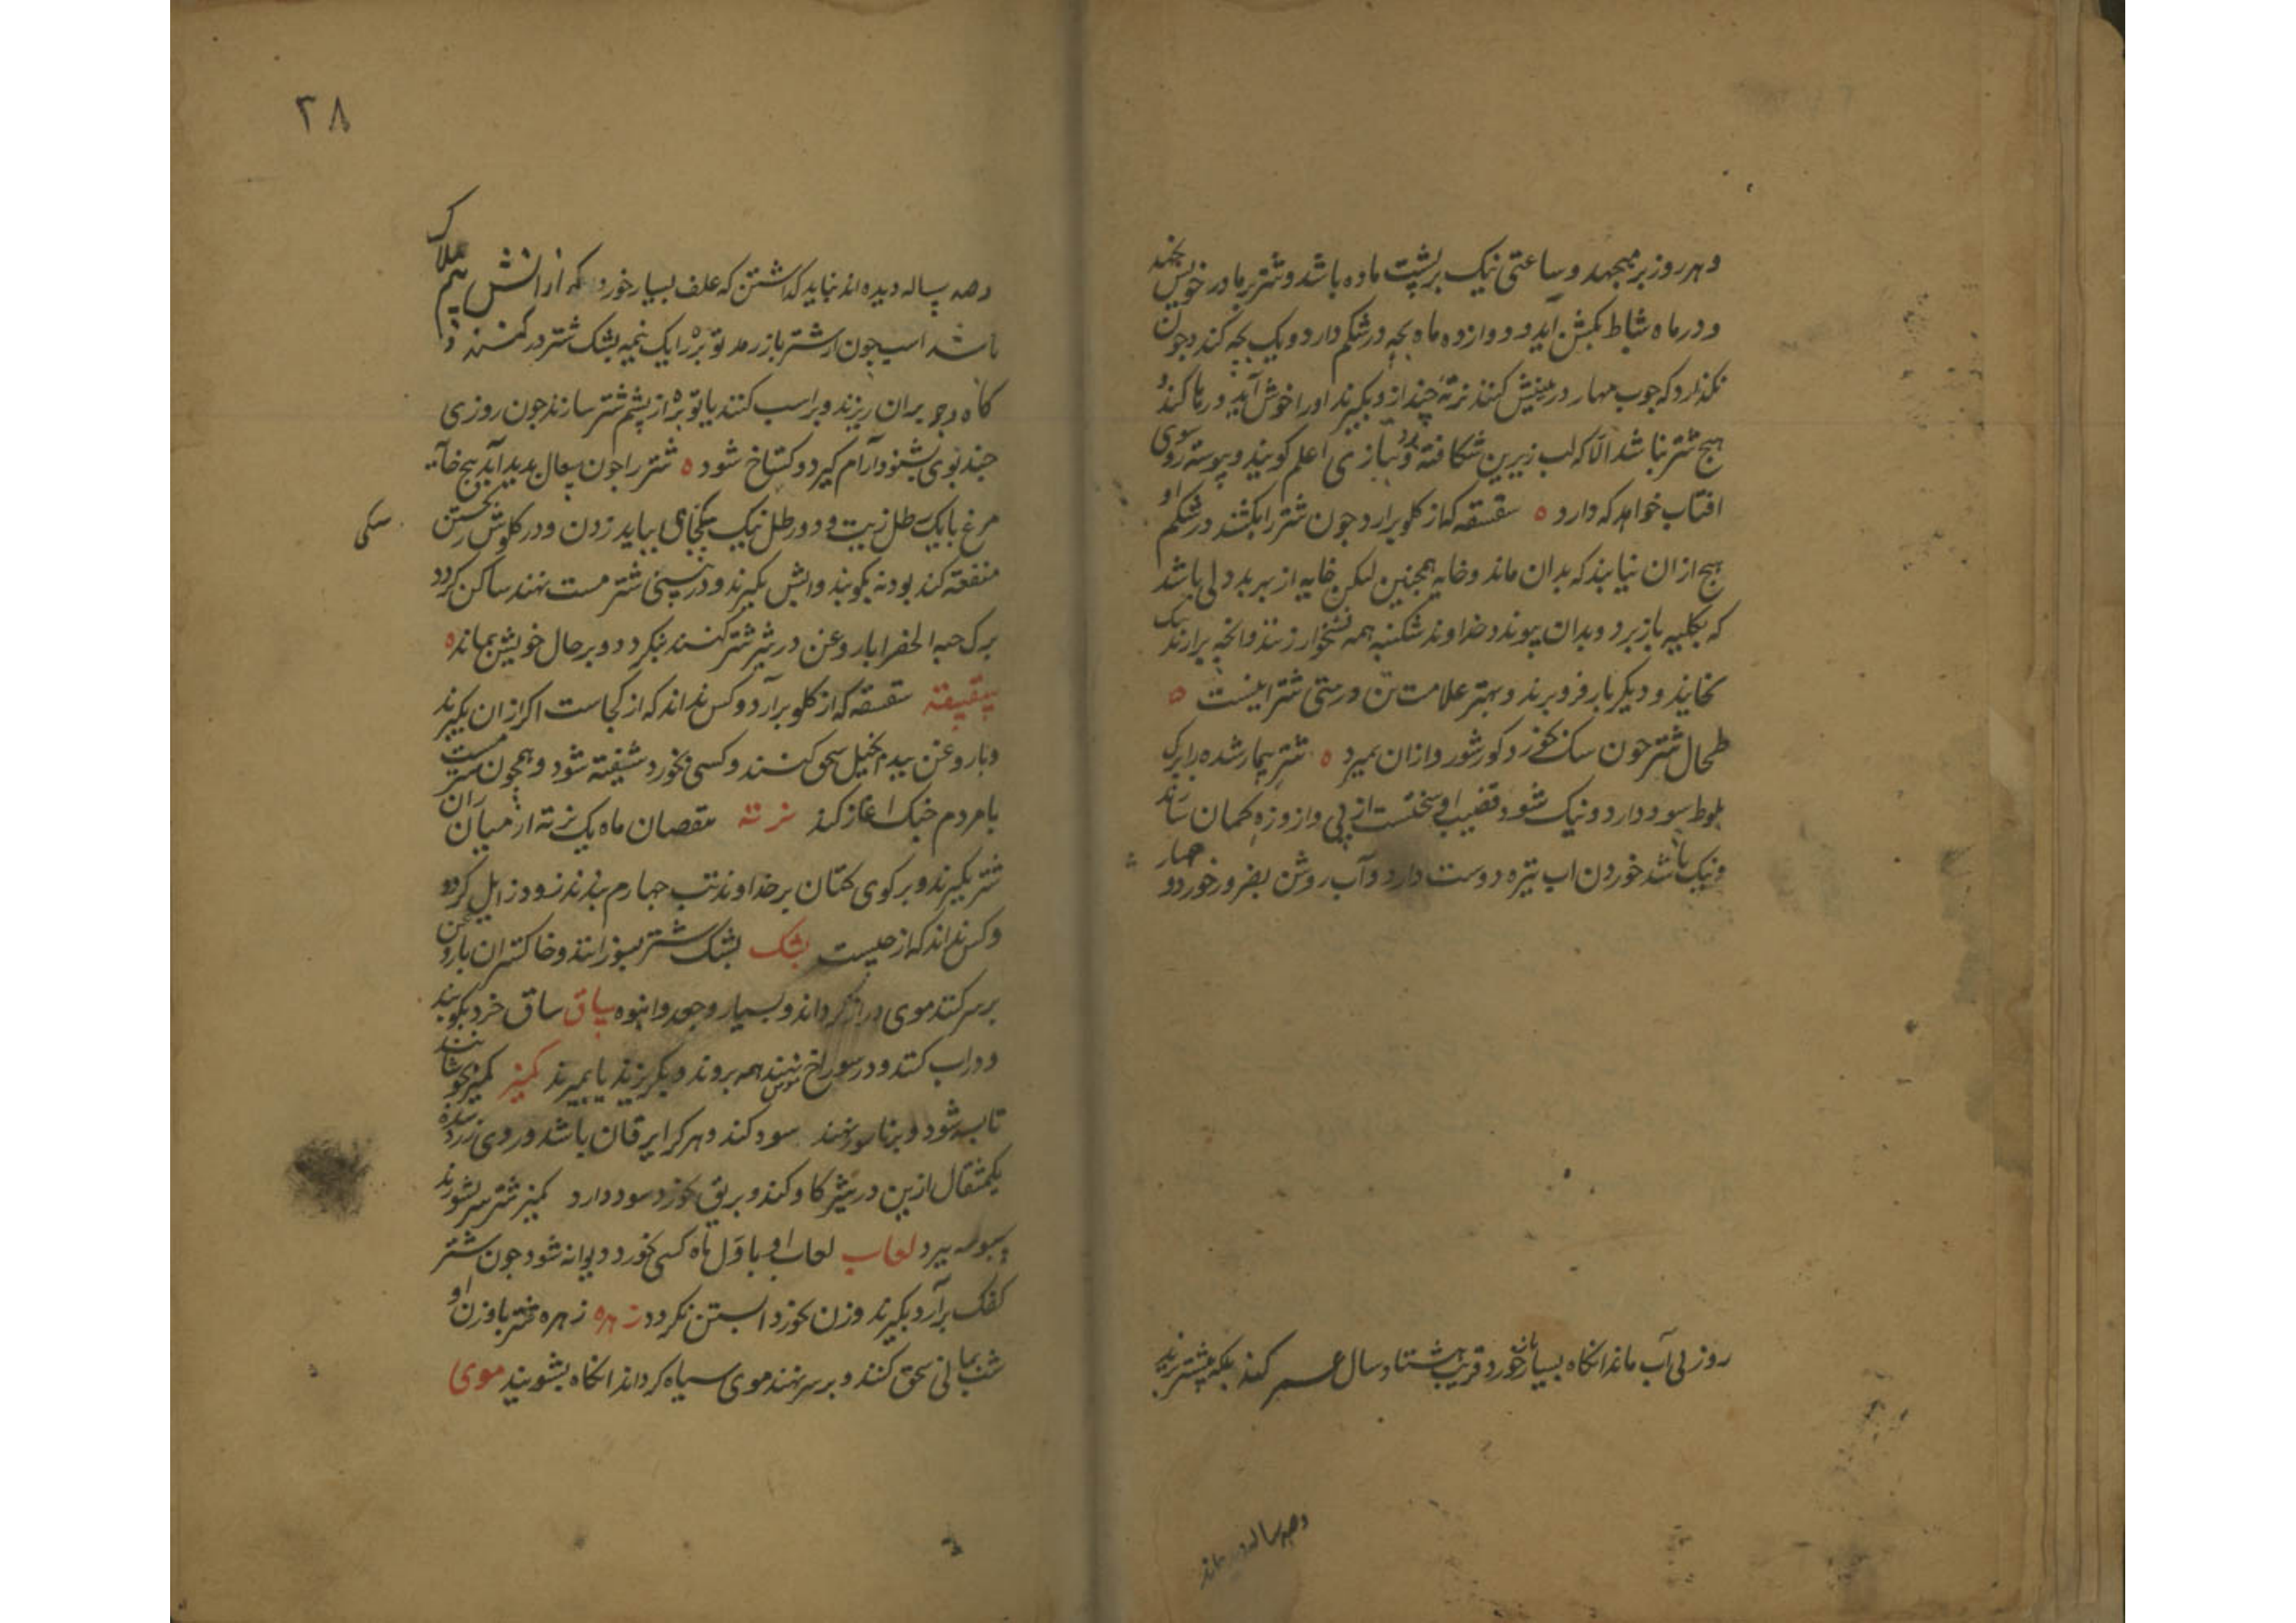 و هر روز برمیجهد و ساعتی نیک بر پشت ماده باشد و شتر بر مادر خویش نجهد
و در ماه شباط بکشن آید و دوازده ماه بچه در شکم دارد و یک بچه کند و چون
نکذارد که چوب مهار در بینیش کنند نرته چند ازو بکیرند او را خوش آید و رها کند و
هیچ شتر نباشد الا که لب زیرین شکافته بود و بتازی اعلم کویند و پیوسته روی سوی
افتاب خواهد که دارد ه شقشقه که از کلو برارد جون شتر را بکشند در شکم او
هیچ از ان نیابند که بدان ماند و خایه همچنین لیکن خایه از بهر بددلی باشد
که بکلیه باز برد و بدان پیوندد خداوند شکنبه همه نشخوار زنند وانچه برارند نیک
بخایند و دیکر بار فرو برند و بهتر علامت تن درستی شتر اینست ه
طحال شتر جون سک بخورد کور شود و ازان بمیرد ه شتر بیمار شده را برک
بلوط سود دارد و نیک شود و قضیب او سختست از پی و ازو زه کمان سازند
و نیک باشد خوردن اب تیره دوست دارد و آب روشن بضرور خورد و چهار
روز بی آب ماند انکاه بسیار خورد و قریب هشتاد سال عمر کند بلکه بیشتر
و صد ساله دیده اند
۲۸
و صد ساله دیده اند نباید کذاشتن که علف بسیار خورد که از انش بیم هلاک
باشد اسب چون از شتر باز رمد توبره را یک نیمه بشک شتر در کنند و
کاه و جو بران ریزند و بر اسب کنند یا توبره از پشم شتر سازند جون روزی
چند بوی بشنود آرام کیرد و کستاخ شود ه شتر را جون سعال بدید آید پنج خایه
مرغ با یک رطل زیت و دو رطل نیک یکجای بباید زدن و در کلوش ریختن
منفعت کند بودنه بکوبند و ابش بکیرند و در بینی شتر مست نهند ساکن کردد
برک حبه الخضرا با روغن در شیر شتر کنند بنکردد و بر حال خویش بماند ه
شقشقه شقشقه که از کلو برآرد و کس نداند که از کجاست اکر ازان بکیرند
و با روغن بید انجیل سحق کنند و کسی بخورد شیفته شود و همچون مست
با مردم جنک اغاز کند نرته بنقصان ماه یک نرته از میان ران
شتر بکیرند و بر کوی کتان بر خداوند تب چهارم بندند زود زایل کردد
و کس نداند که از چیست بشک بشک شتر بسوزانند و خاکستر ان با روغن
بر سر کنند موی دراز کرداند و بسیار و جعد و انبوه ساق ساق خرد بکوبند
و در اب کنند و در سوراخ موش نهند همه بروند و بکریزند یا بمیرند کمیز کمیز بجوشانند
تا بسته شود و بر ناسور نهند سود کند و هر کرا یرقان باشد و روی زرد شده
یکمثقال ازین در شیر کاو کند و بریق خورد سود دارد کمیز شتر سر بشورند
و سبوسه ببرد لعاب لعاب او باول ماه کسی خورد دیوانه شود جون شتر
کفک برآرد بکیرند و زن بخورد ابستن نکردد زهره زهره شتر با وزن او
شب یمانی سحق کنند و بر سر نهند موی سیاه کرداند انکاه بشویند موی